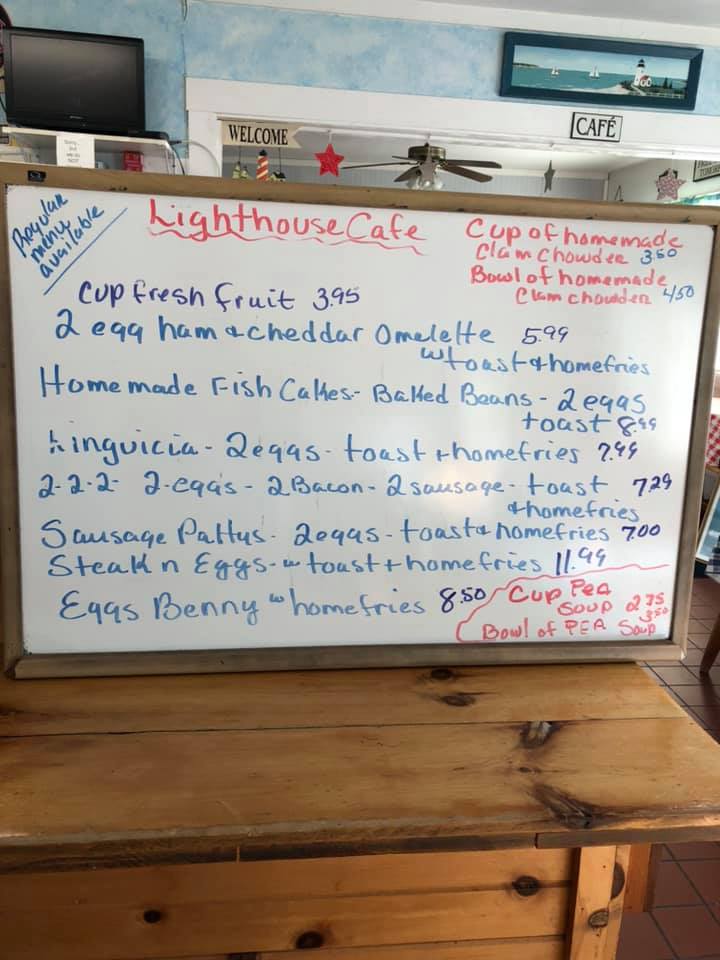 WELCOME
CAFÉ
Regular
menu
available
Lighthouse Cafe
Cup of homemade
Clam Chowder 3.50
Bowl of homemade
Clam chowder 4.50
Cup fresh fruit 3.95
2 egg ham & cheddar Omelette 5.99
w toast & homefries
Homemade Fish Cakes - Baked Beans - 2 eggs
toast 8.99
Linguicia - 2 eggs - toast + homefries 7.99
2-2-2- 2-eggs - 2 Bacon - 2 sausage - toast 7.29
& homefries
Sausage Pattys - 2 eggs - toast & homefries 7.00
Steak n Eggs - w toast + homefries 11.99
Eggs Benny w homefries 8.50
Cup Pea
Soup 2.75
Bowl of PEA Soup 3.50